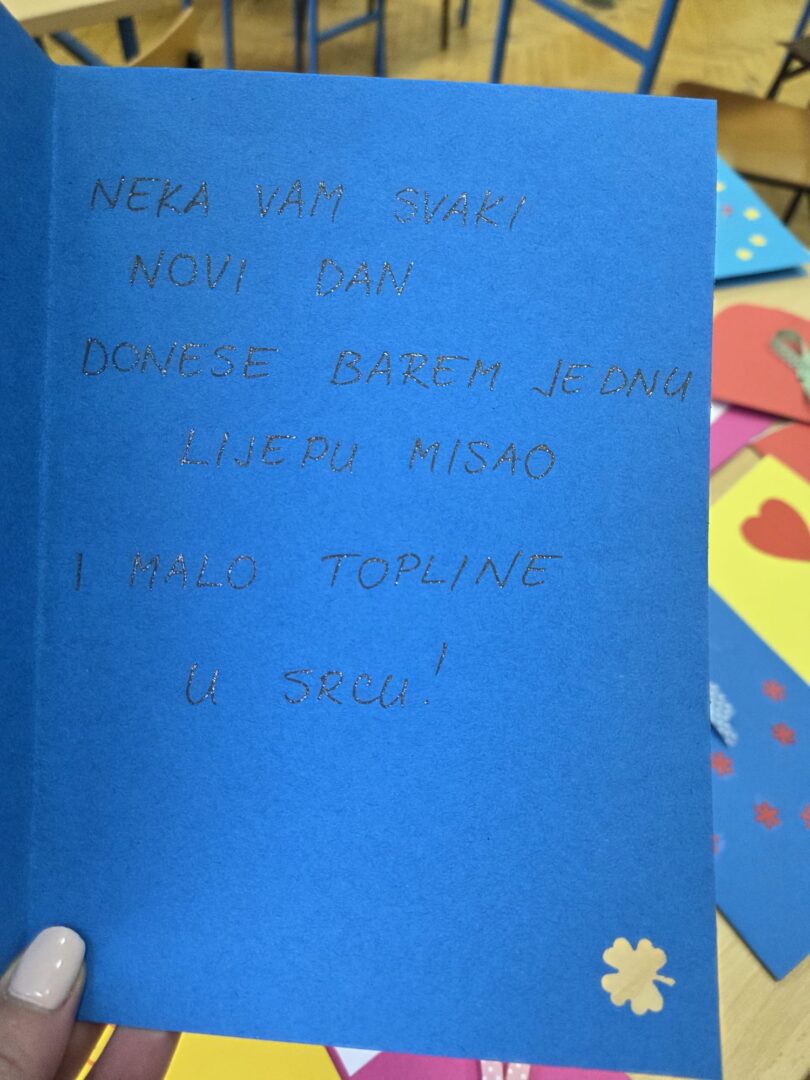 NEKA VAM SVAKI
NOVI DAN
DONESE BAREM JEDNU
LIJEPU MISAO
I MALO TOPLINE
U SRCU!